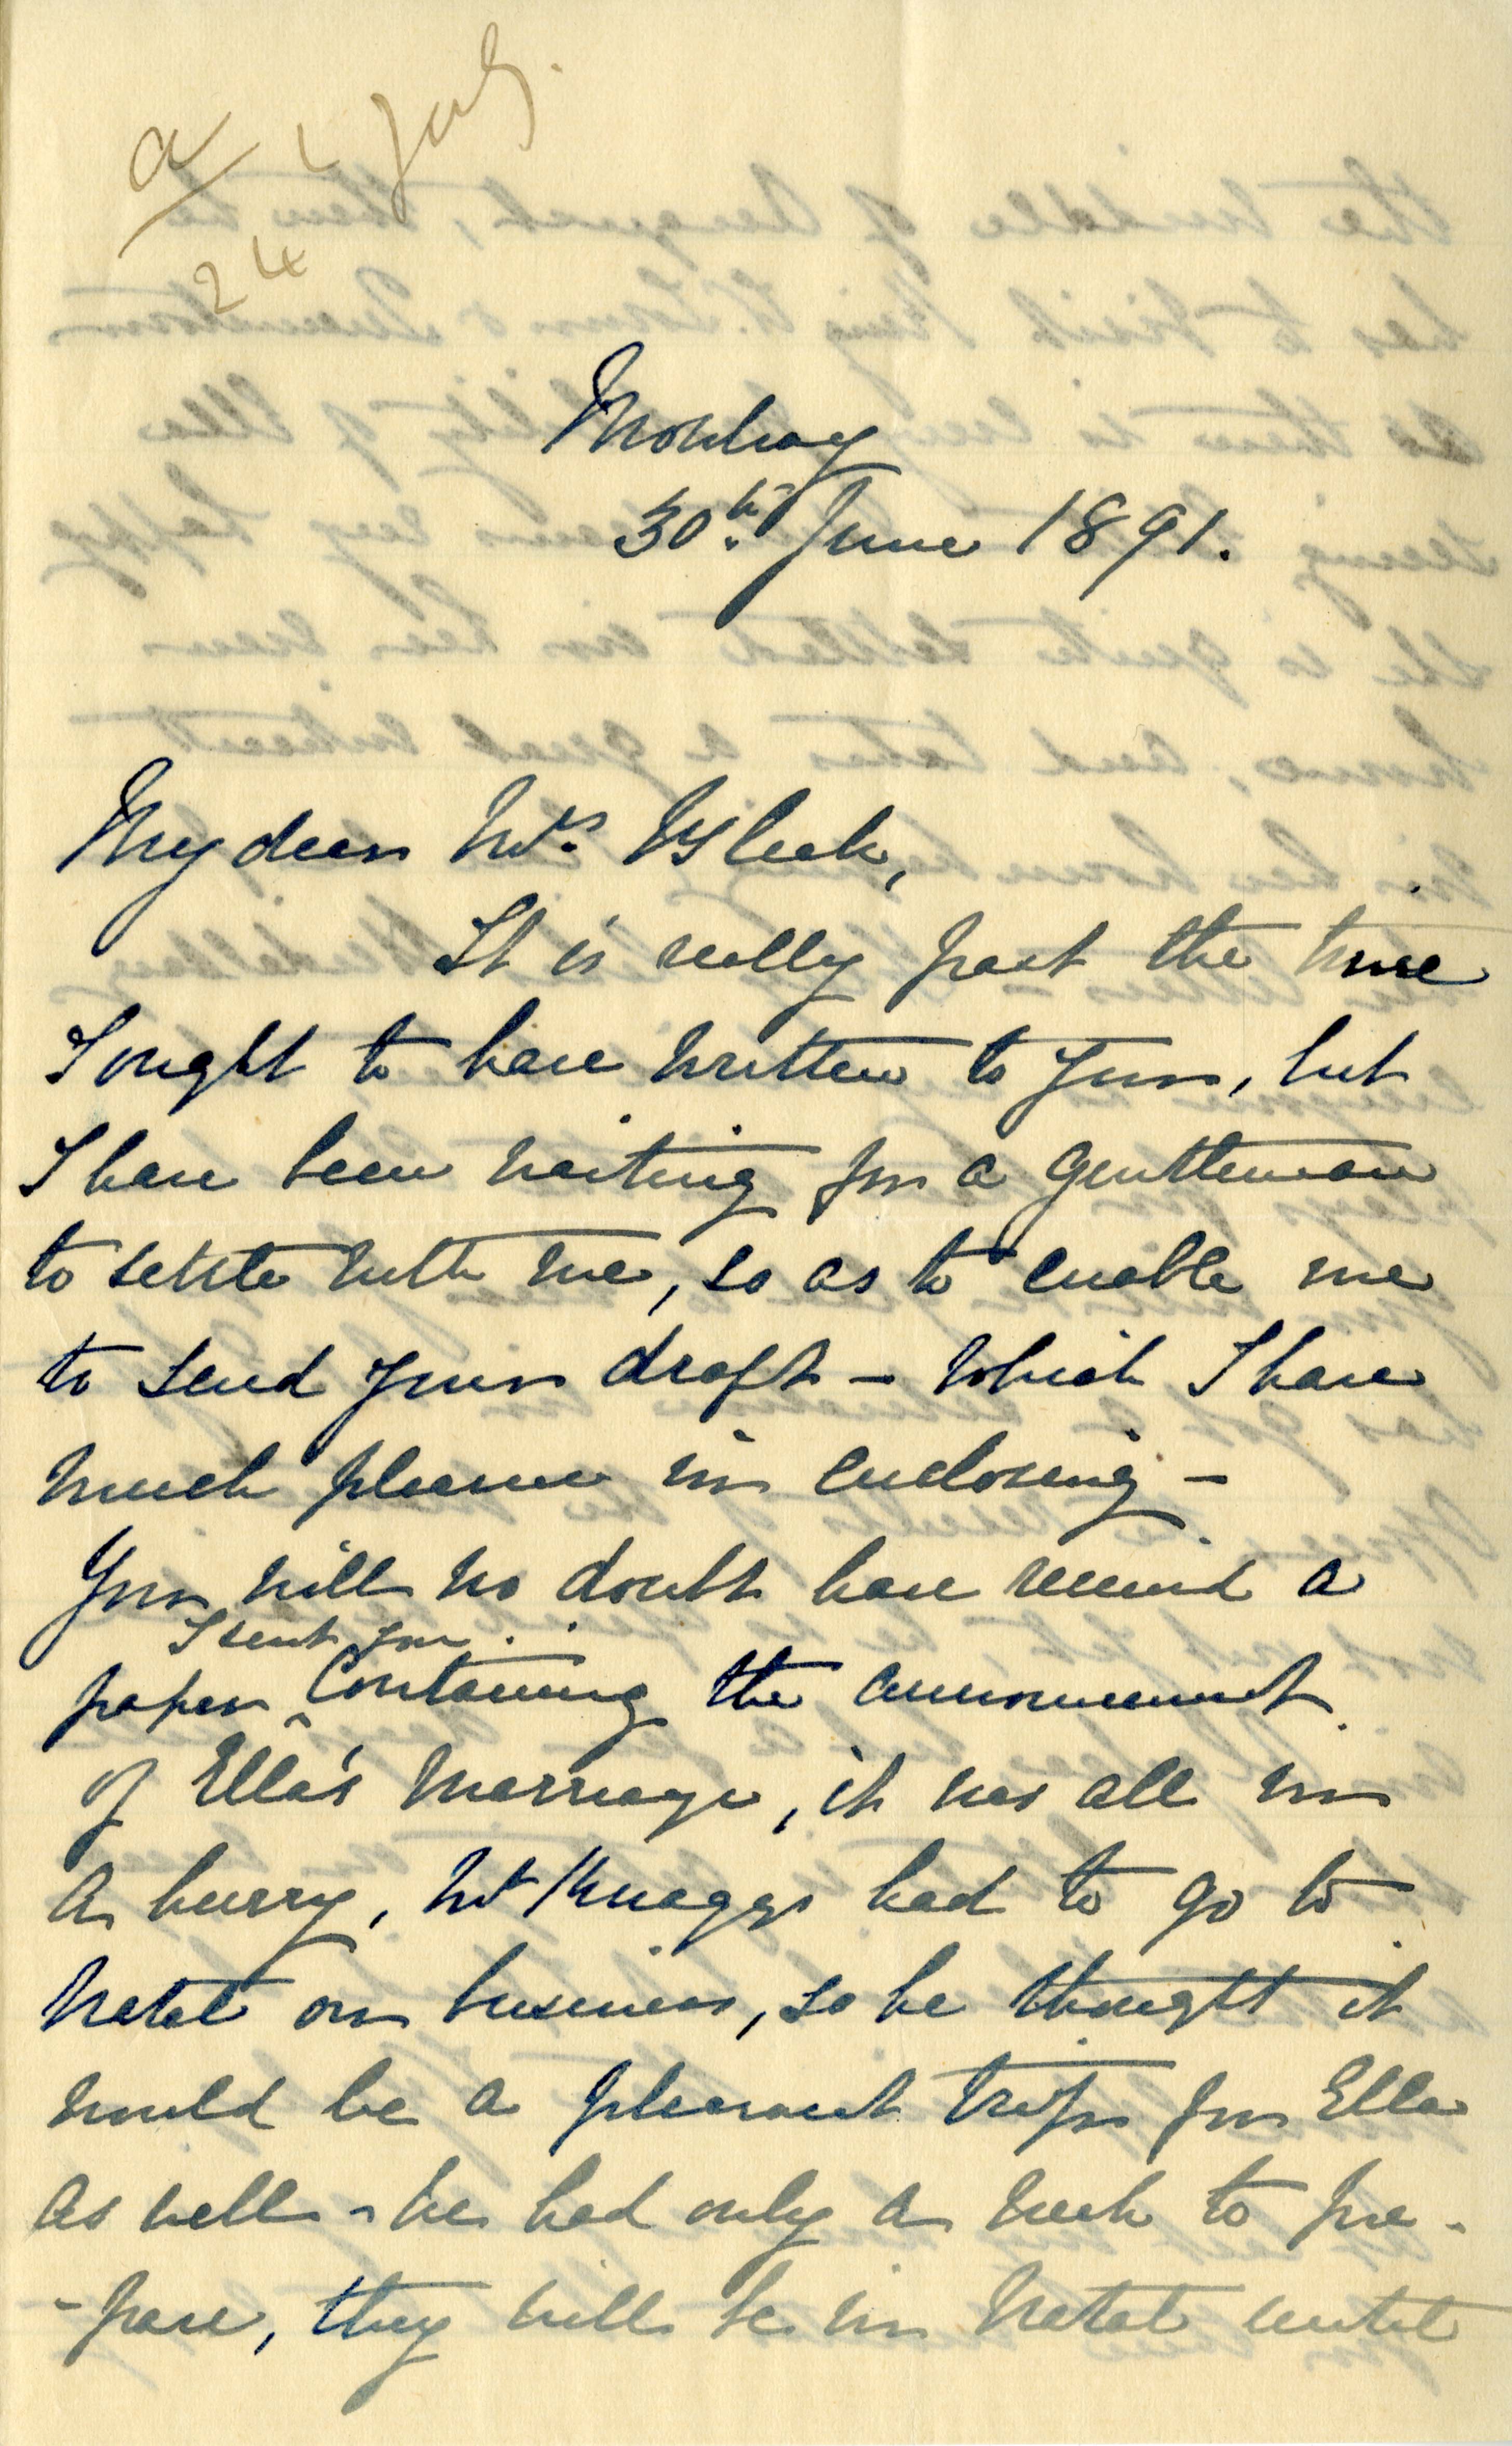 a/ 2 July.
24
Mowbray
30th June 1891.
My dear Mrs Bleek,
It is really past the time
I ought to have written to you, but
I have been waiting for a gentleman
to settle with me, so as to enable me
to send your draft - which I have
much pleasure in enclosing -
You will no doubt have received a
I sent you
paper ^ containing the announcement
of Ella's marriage, it was all in
a hurry, Mr Knaggs had to go to
Natal on business, so he thought it
would be a pleasant trip for Ella
as well - we had only a week to pre-
-pare, they will be in Natal until